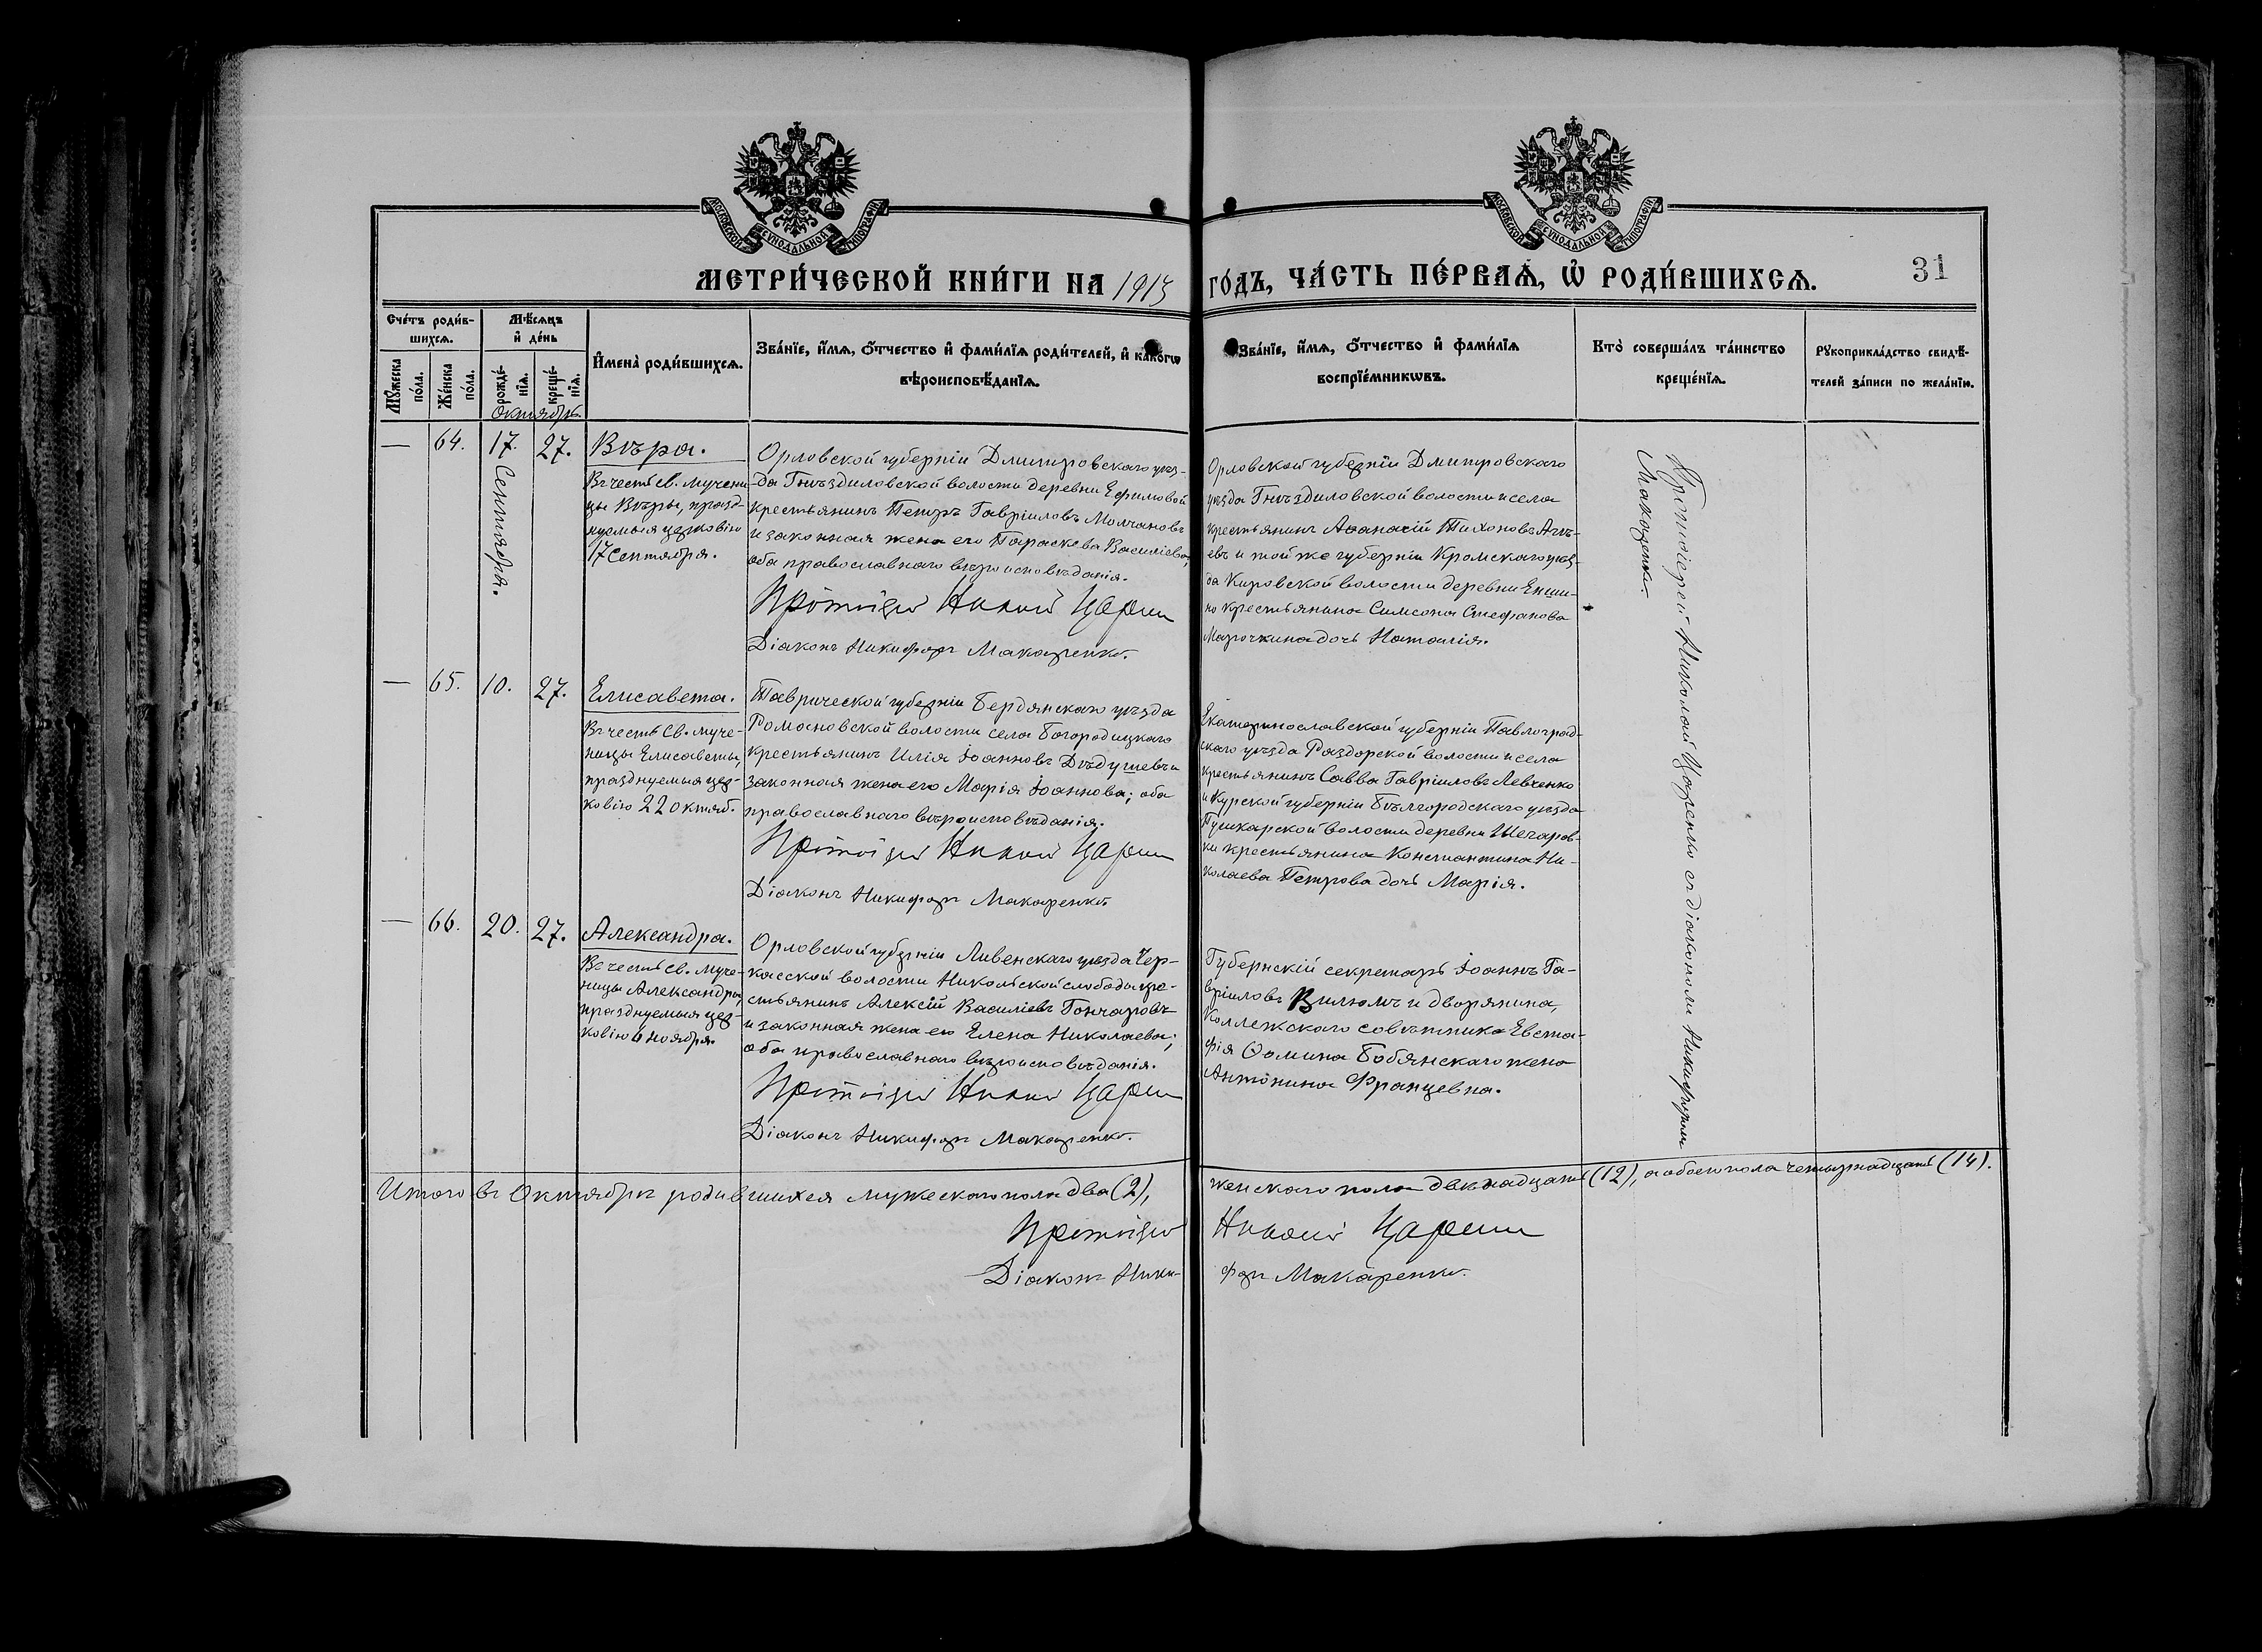 МОСКОВСКОЙ СѴНОДАЛЬНОЙ ТИПОГРАФІИ
МОСКОВСКОЙ СѴНОДАЛЬНОЙ ТИПОГРАФІИ
МЕТРИ́ЧЕСКОЙ КНИ́ГИ НА 1913 ГО́ДЪ, ЧА́СТЬ ПЕ́РВАѦ, Ѡ҆ РОДИ́ВШИХСѦ.
31
Сче́тъ роди́в-
шихсѧ.
Мꙋ́жеска по́ла.
Же́нска по́ла.
Мѣ́сѧцъ
и҆ де́нь
рожде́-
нїѧ.
креще́-
нїѧ.
И҆мена̀ роди́вшихсѧ.
Зва́нїе, и҆́мѧ, ѻ҆́тчество и҆ фами́лїѧ роди́телей, и҆ како́гѡ
вѣроисповѣ́данїѧ.
Зва́нїе, и҆́мѧ, ѻ҆́тчество и҆ фами́лїѧ
воспрїе́мникѡвъ.
Кто̀ соверша́лъ та́инство
креще́нїѧ.
Рꙋкоприкла́дство свидѣ́-
телей за́писи по жела́нїю.
Октябрь.
— 64. 17. 27. Вѣра.
Сентября.
Въ честь св. мучени-
цы Вѣры, празд-
нуемыя церковію
17 Сентября.
Орловской губерніи Дмитровскаго уѣз-
да Гнѣздиловской волости деревни Ефимовой
крестьянинъ Петръ Гавріиловъ Молчановъ
и законная жена его Параскева Василіева,
оба православнаго вѣроисповѣданія.
Протоіерей Николай Царенко
Діаконъ Никифоръ Макаренко.
Орловской губерніи Дмитровскаго
уѣзда Гнѣздиловской волости и села
крестьянинъ Аѳанасій Тихоновъ Агѣ-
евъ и той же губерніи Кромскаго уѣз-
да Кировской волости деревни
крестьянина Симеона Стефанова
Марочкина дочь Наталія.
Протоіерей Николай Царенко съ діакономъ Никифоромъ
Макаренко.
— 65. 10. 27. Елисавета.
Въ честь Св. муче-
ницы Елисаветы,
празднуемыя цер-
ковію 22 октяб.
Таврической губерніи Бердянскаго уѣзда
Романовской волости села Богородицкаго
крестьянинъ Илія Іоанновъ Дѣдушевъ и
законная жена его Марія Іоаннова; оба
православнаго вѣроисповѣданія.
Протоіерей Николай Царенко
Діаконъ Никифоръ Макаренко
Екатеринославской губерніи Павлоград-
скаго уѣзда Раздорской волости и села
крестьянинъ Савва Гавріиловъ Левченко
и Курской губерніи Бѣлгородскаго уѣзда
Пушкарской волости деревни
крестьянина Константина Ни-
колаева Петрова дочь Марія.
— 66. 20. 27. Александра.
Въ честь св. муче-
ницы Александры,
празднуемыя цер-
ковію 6 ноября.
Орловской губерніи Ливенскаго уѣзда Чер-
касской волости Никольской слободы кре-
стьянинъ Алексій Василіевъ Гончаровъ
и законная жена его Елена Николаева;
оба православнаго вѣроисповѣданія.
Протоіерей Николай Царенко
Діаконъ Никифоръ Макаренко.
Губернскій секретарь Іоаннъ Га-
вріиловъ и дворянина,
Коллежскаго совѣтника Евста-
фія Ѳомина Бобянскаго жена
Антонина Францевна.
Итого въ Октябрѣ родившихся мужескаго пола два (2), женскаго пола двѣнадцать (12), а обоего пола четырнадцать (14).
Протоіерей Николай Царенко
Діаконъ Никифоръ Макаренко.